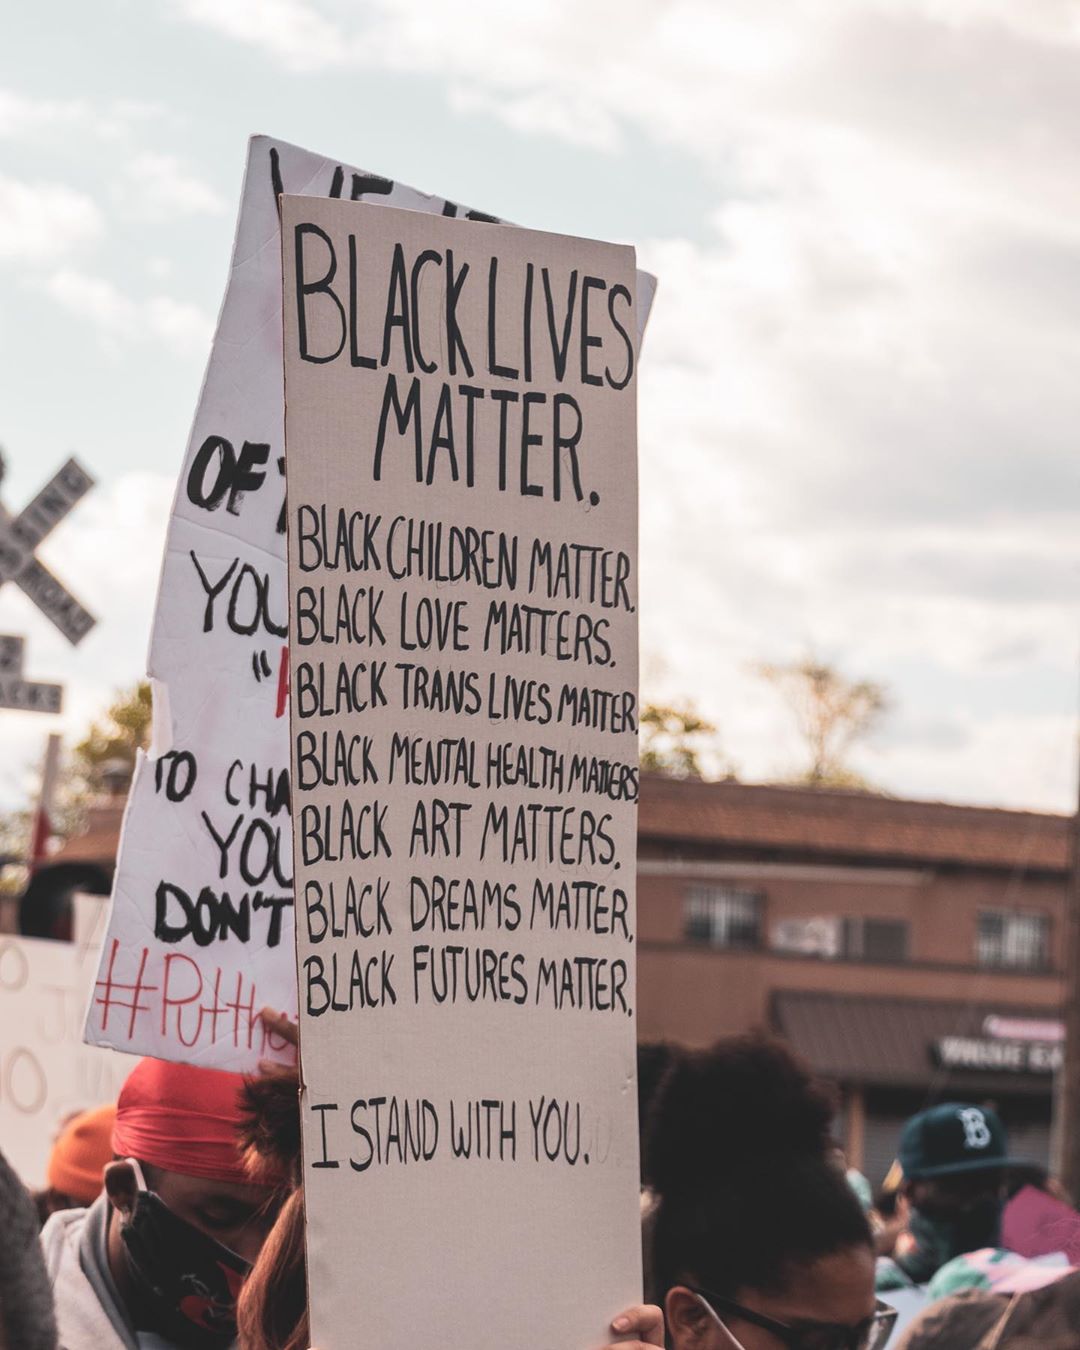 BLACK LIVES
MATTER.
BLACK CHILDREN MATTER.
BLACK LOVE MATTERS.
BLACK TRANS LIVES MATTER.
BLACK MENTAL HEALTH MATTERS
BLACK ART MATTERS.
BLACK DREAMS MATTER.
BLACK FUTURES MATTER.
I STAND WITH YOU.
OF
YOU
"
TO CHA
YOU
DON'T
#Putthe
B